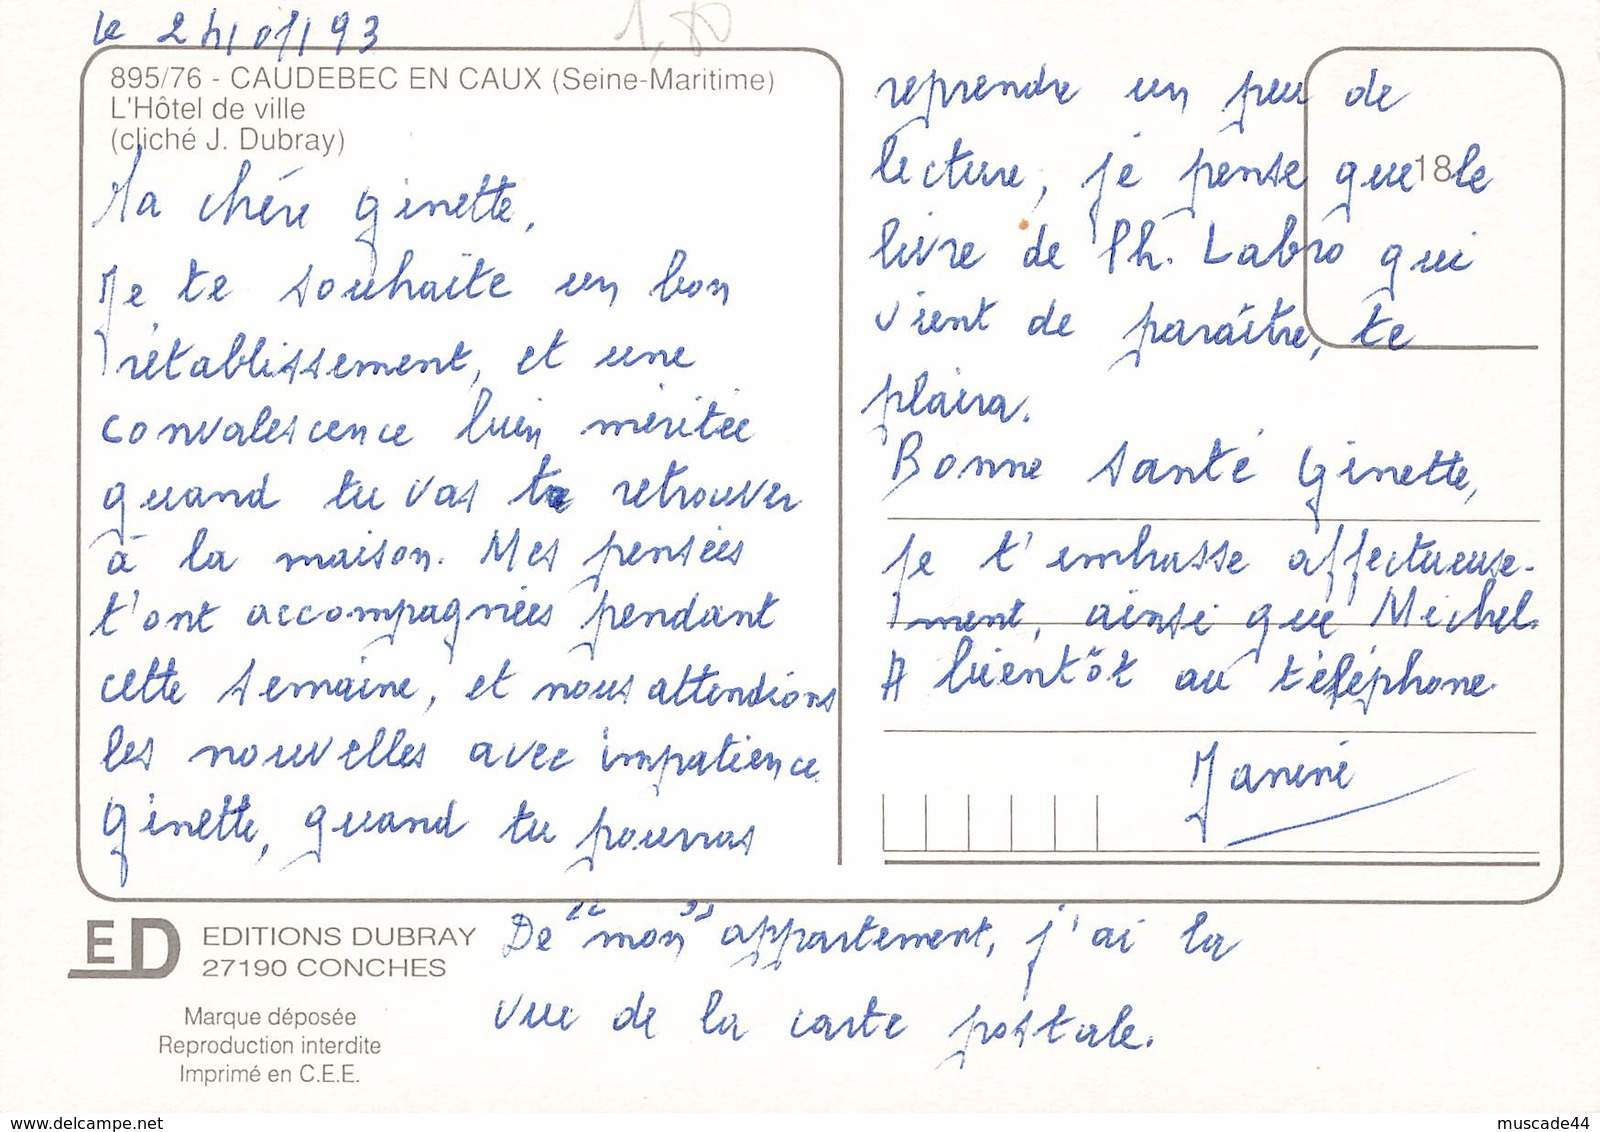 le 24/01/93
1,80
895/76 - CAUDEBEC EN CAUX (Seine-Maritime)
L'Hôtel de ville
(cliché J. Dubray)
Ma chère Ginette,
Je te souhaite un bon
rétablissement, et une
convalescence bien méritée
quand tu vas te retrouver
à la maison. Mes pensées
t'ont accompagnées pendant
cette semaine, et nous attendions
les nouvelles avec impatience
Ginette, quand tu pourras
reprendre un peu de
lecture, je pense que le
18
livre de Ph. Labro qui
vient de paraître, te
plaira.
Bonne santé Ginette,
je t'embrasse affectueuse-
ment, ainsi que Michel.
A bientôt au téléphone
Janine
ED
EDITIONS DUBRAY
27190 CONCHES
Marque déposée
Reproduction interdite
Imprimé en C.E.E.
De "mon" appartement, j'ai la
vue de la carte postale.
delcampe.net
muscade44